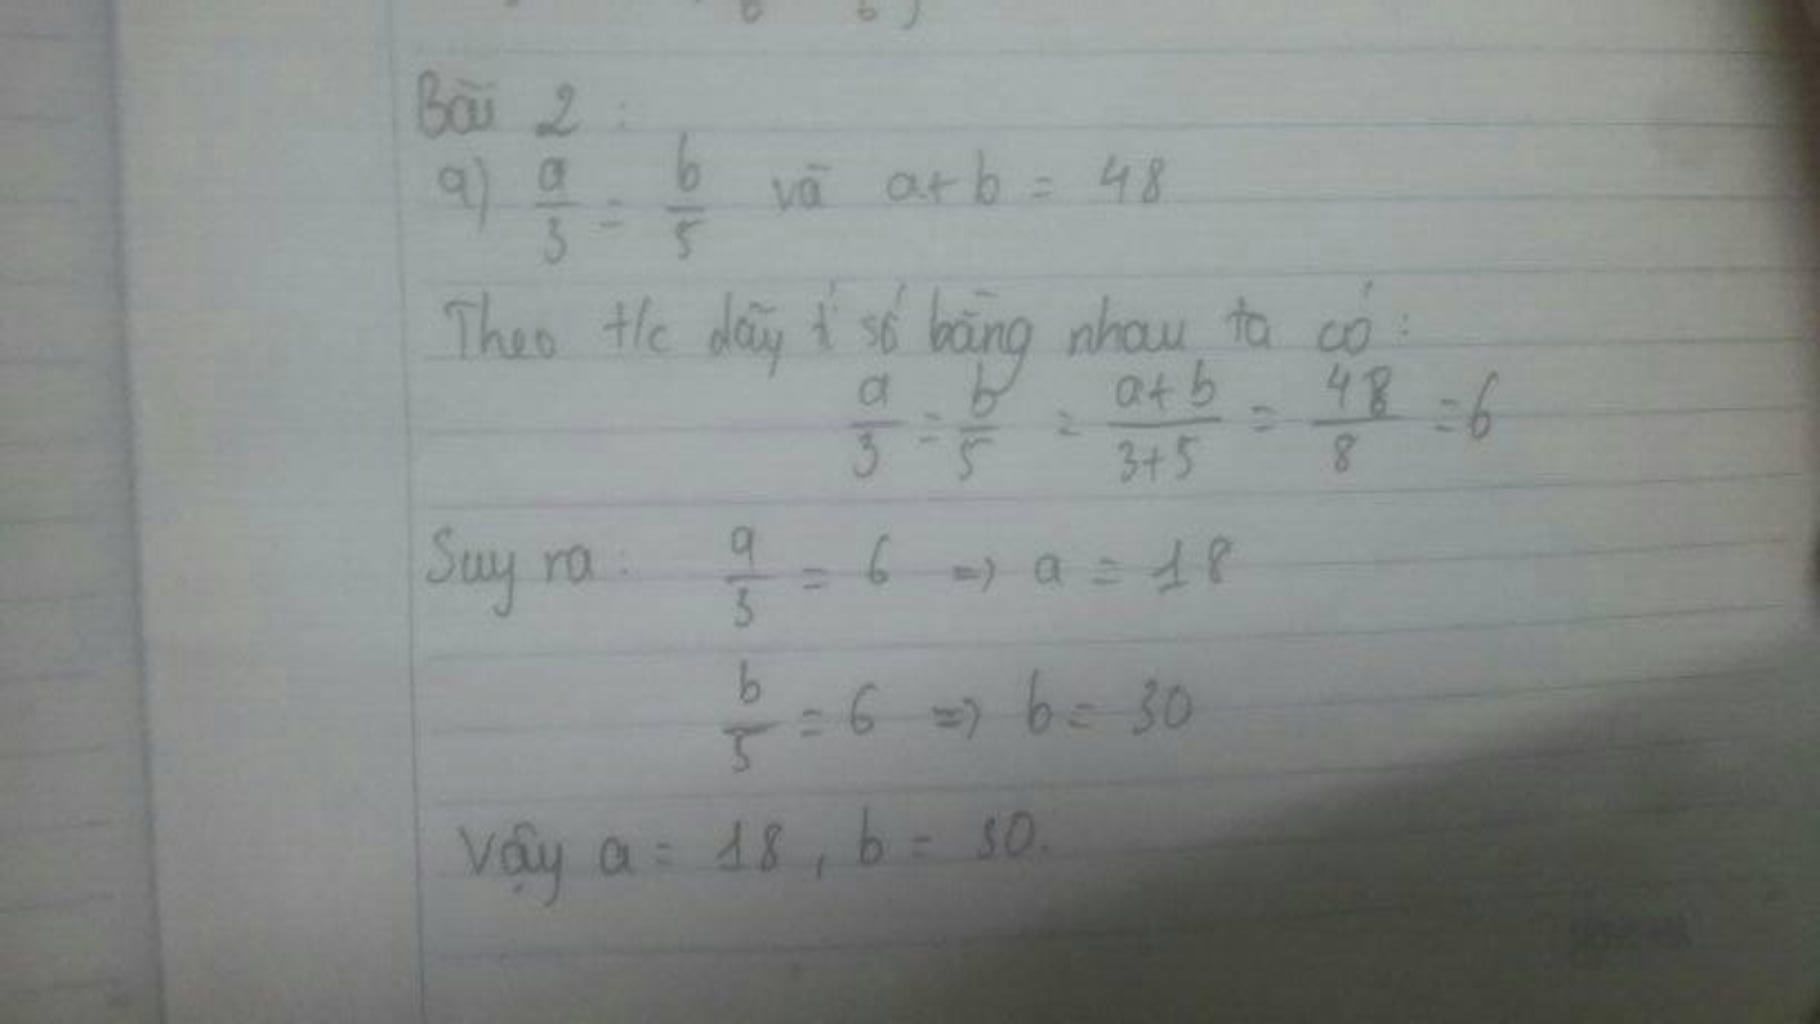 Bài 2:
a) a/3 = b/5 và a+b = 48
Theo t/c dãy tỉ số bằng nhau ta có:
a/3 = b/5 = a+b/3+5 = 48/8 = 6
Suy ra: a/3 = 6 => a = 18
b/5 = 6 => b = 30
Vậy a = 18, b = 30.